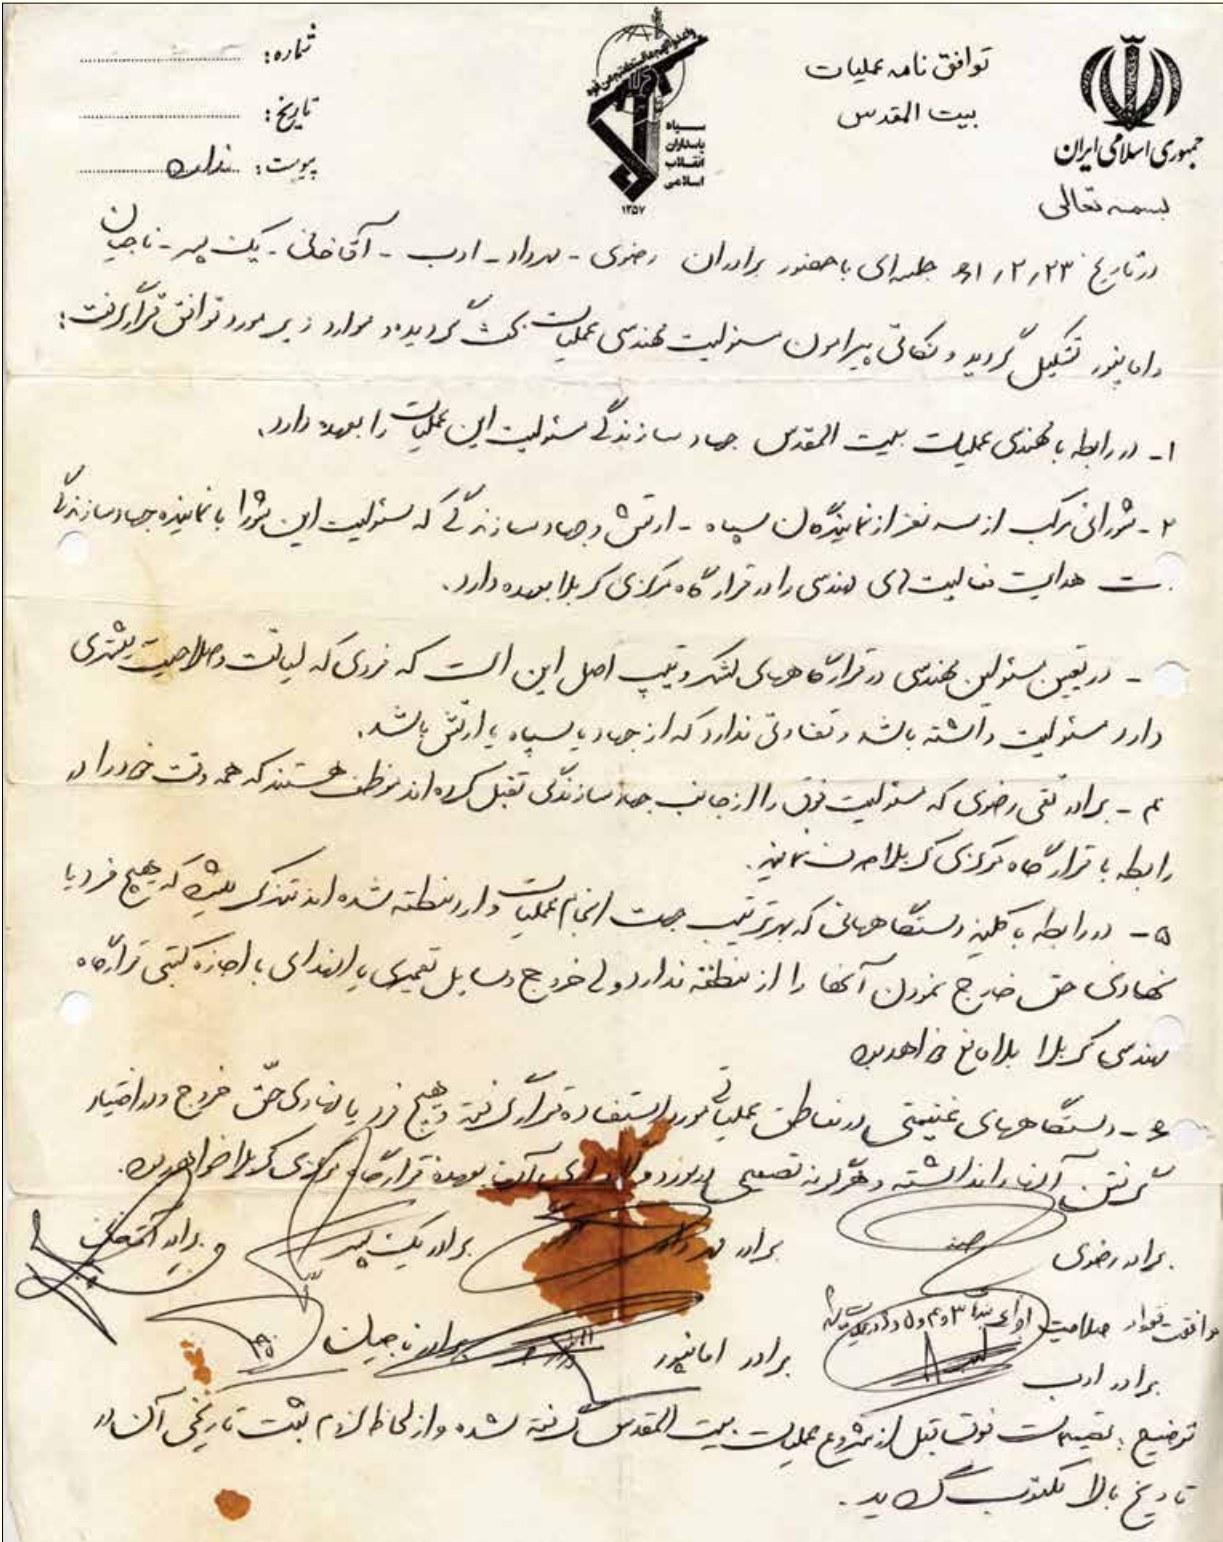 جمهوری اسلامی ایران
توافق نامه عملیات
بیت المقدس
سپاه
پاسداران
انقلاب
اسلامی
۱۳۵۷
شماره:
تاریخ:
پیوست: ندارد
بسمه تعالی
در تاریخ ۶۱/۲/۲۳ جلسه‌ای با حضور برادران رضوی - مهرداد - ادب - آقاخانی - یک پسر - ناجیان
و امانپور تشکیل گردید و نکاتی پیرامون مسئولیت مهندسی عملیات بحث گردیده و موارد زیر مورد توافق قرار گرفت:
۱- در رابطه با مهندسی عملیات بیت المقدس جهاد سازندگی مسئولیت این عملیات را بعهده دارد.
۲- شورائی مرکب از سه نفر از نمایندگان سپاه - ارتش و جهاد سازندگی که مسئولیت این شورا با نماینده جهاد سازندگی
ست هدایت فعالیت های مهندسی را در قرارگاه مرکزی کربلا بعهده دارد.
- در تعیین مسئولین مهندسی در قرارگاههای لشکر و تیپ اصل این است که فردی که لیاقت و صلاحیت بیشتری
دارد مسئولیت داشته باشد و تفاوتی ندارد که از جهاد یا سپاه یا ارتش باشد.
۴- برادر تقی رضوی که مسئولیت فوق را از جانب جهاد سازندگی تقبل کرده اند موظف هستند که همه وقت خود را در
رابطه با قرارگاه مرکزی کربلا صرف نمایند.
۵- در رابطه با کلیه دستگاههائی که بهر ترتیب جهت انجام عملیات وارد منطقه شده اند تذکر میشود که هیچ فرد یا
نهادی حق خارج نمودن آنها را از منطقه ندارد ولی خروج وسایل تعمیری یا امدادی با اجازه کتبی قرارگاه
مهندسی کربلا بلامانع خواهد بود
۶- دستگاههای غنیمتی در مناطق عملیاتی مورد استفاده قرار گرفته و هیچ فرد یا نهادی حق خروج و در اختیار
گرفتن آنها را نداشته و هرگونه تصمیمی در مورد واگذاری آن بعهده قرارگاه مرکزی کربلا خواهد بود.
برادر رضوی
برادر مهرداد
برادر یک پسر
برادر آقاخانی
برادر ادب
برادر امانپور
برادر ناجیان
توضیح: تصمیمات فوق قبل از شروع عملیات بیت المقدس گرفته شده و از لحاظ لزوم ثبت تاریخی آن در
تاریخ بالا مکتوب گردید.